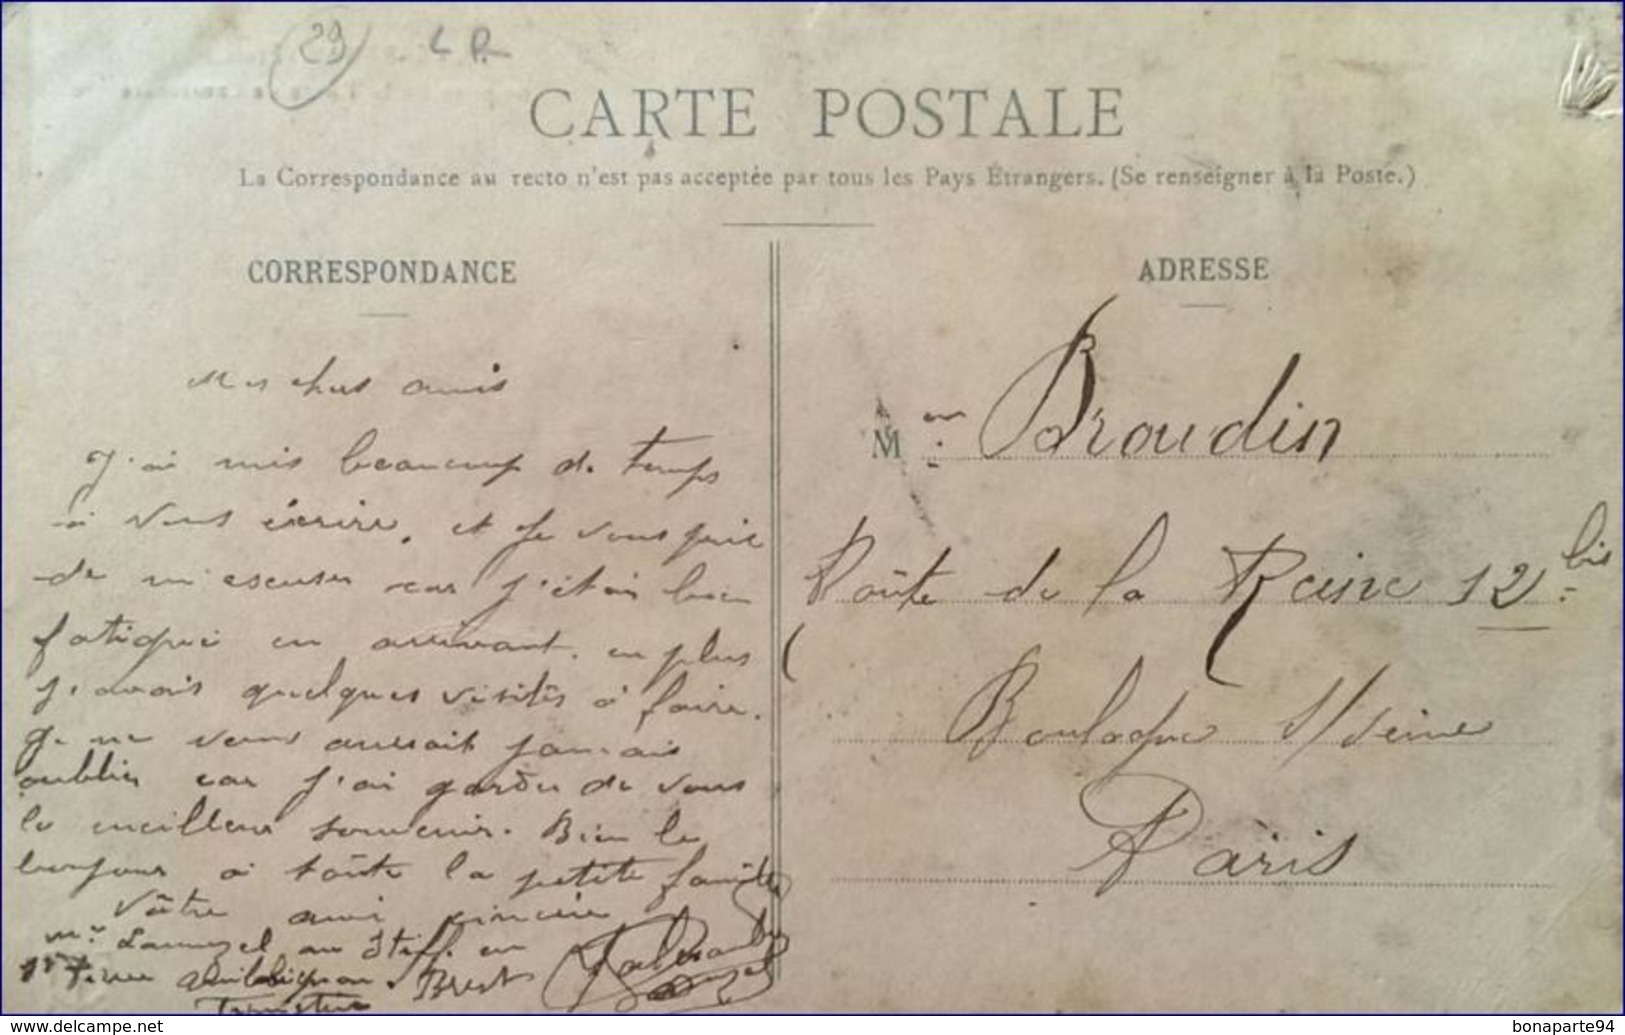 29 L P.
CARTE POSTALE
La Correspondance au recto n'est pas acceptée par tous les Pays Étrangers. (Se renseigner à la Poste.)
CORRESPONDANCE
Mes chers amis
J'ai mis beaucoup de temps
à vous écrire, et je vous prie
de m'escuser car j'étais bien
fatiqué en arrivant. en plus
j'avais quelques visités à faire.
Je ne vous aurait jamais
oublier car j'ai garder de vous
le meilleur souvenir. Bien le
bonjour à toute la petite famille
Vôtre ami sincère
Mr Lannuzel au Stiff. en
Brest
ADRESSE
M on Broudin
Roûte de la Reine 12 bis
Boulogne s/ Seine
Paris
www.delcampe.net
bonaparte94